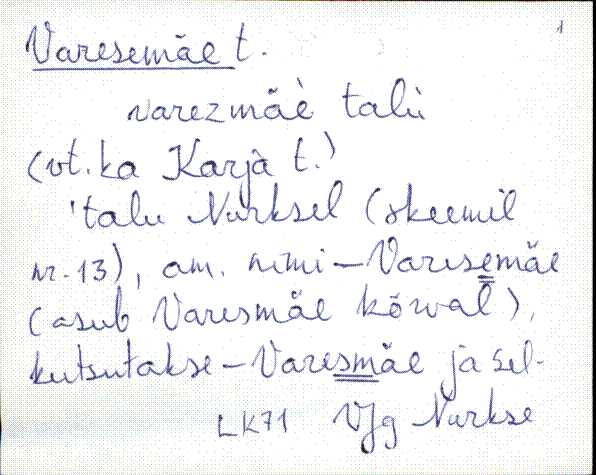 1
Varesemäe t.
varezmäè talù
(vt. ka Karjà t.)
'talu Nurksel (skeemil
nr. 13), am. nimi – Varesemäe
(asub Varesmäe kõrval),
kutsutakse – Varesmäe ja sel-
LK71 VJg Nurkse